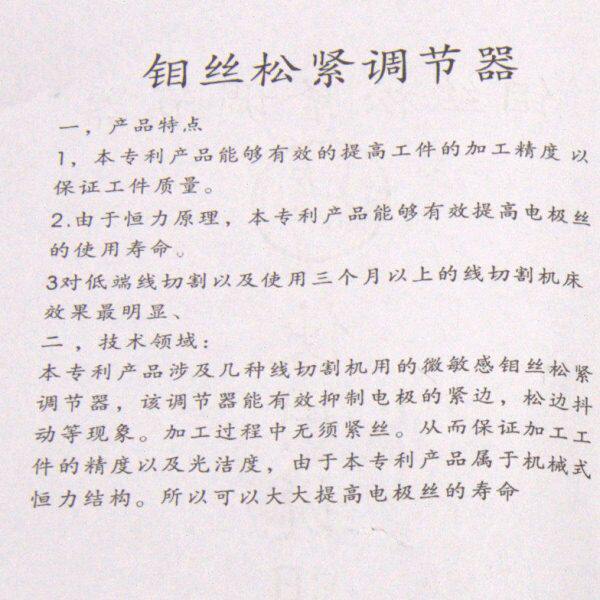 钼丝松紧调节器
一，产品特点
1，本专利产品能够有效的提高工件的加工精度 以
保证工件质量。
2.由于恒力原理，本专利产品能够有效提高电极丝
的使用寿命。
3对低端线切割以及使用三个月以上的线切割机床
效果最明显、
二，技术领域：
本专利产品涉及几种线切割机用的微敏感钼丝松紧
调节器，该调节器能有效抑制电极的紧边，松边抖
动等现象。加工过程中无须紧丝。从而保证加工工
件的精度以及光洁度，由于本专利产品属于机械式
恒力结构。所以可以大大提高电极丝的寿命